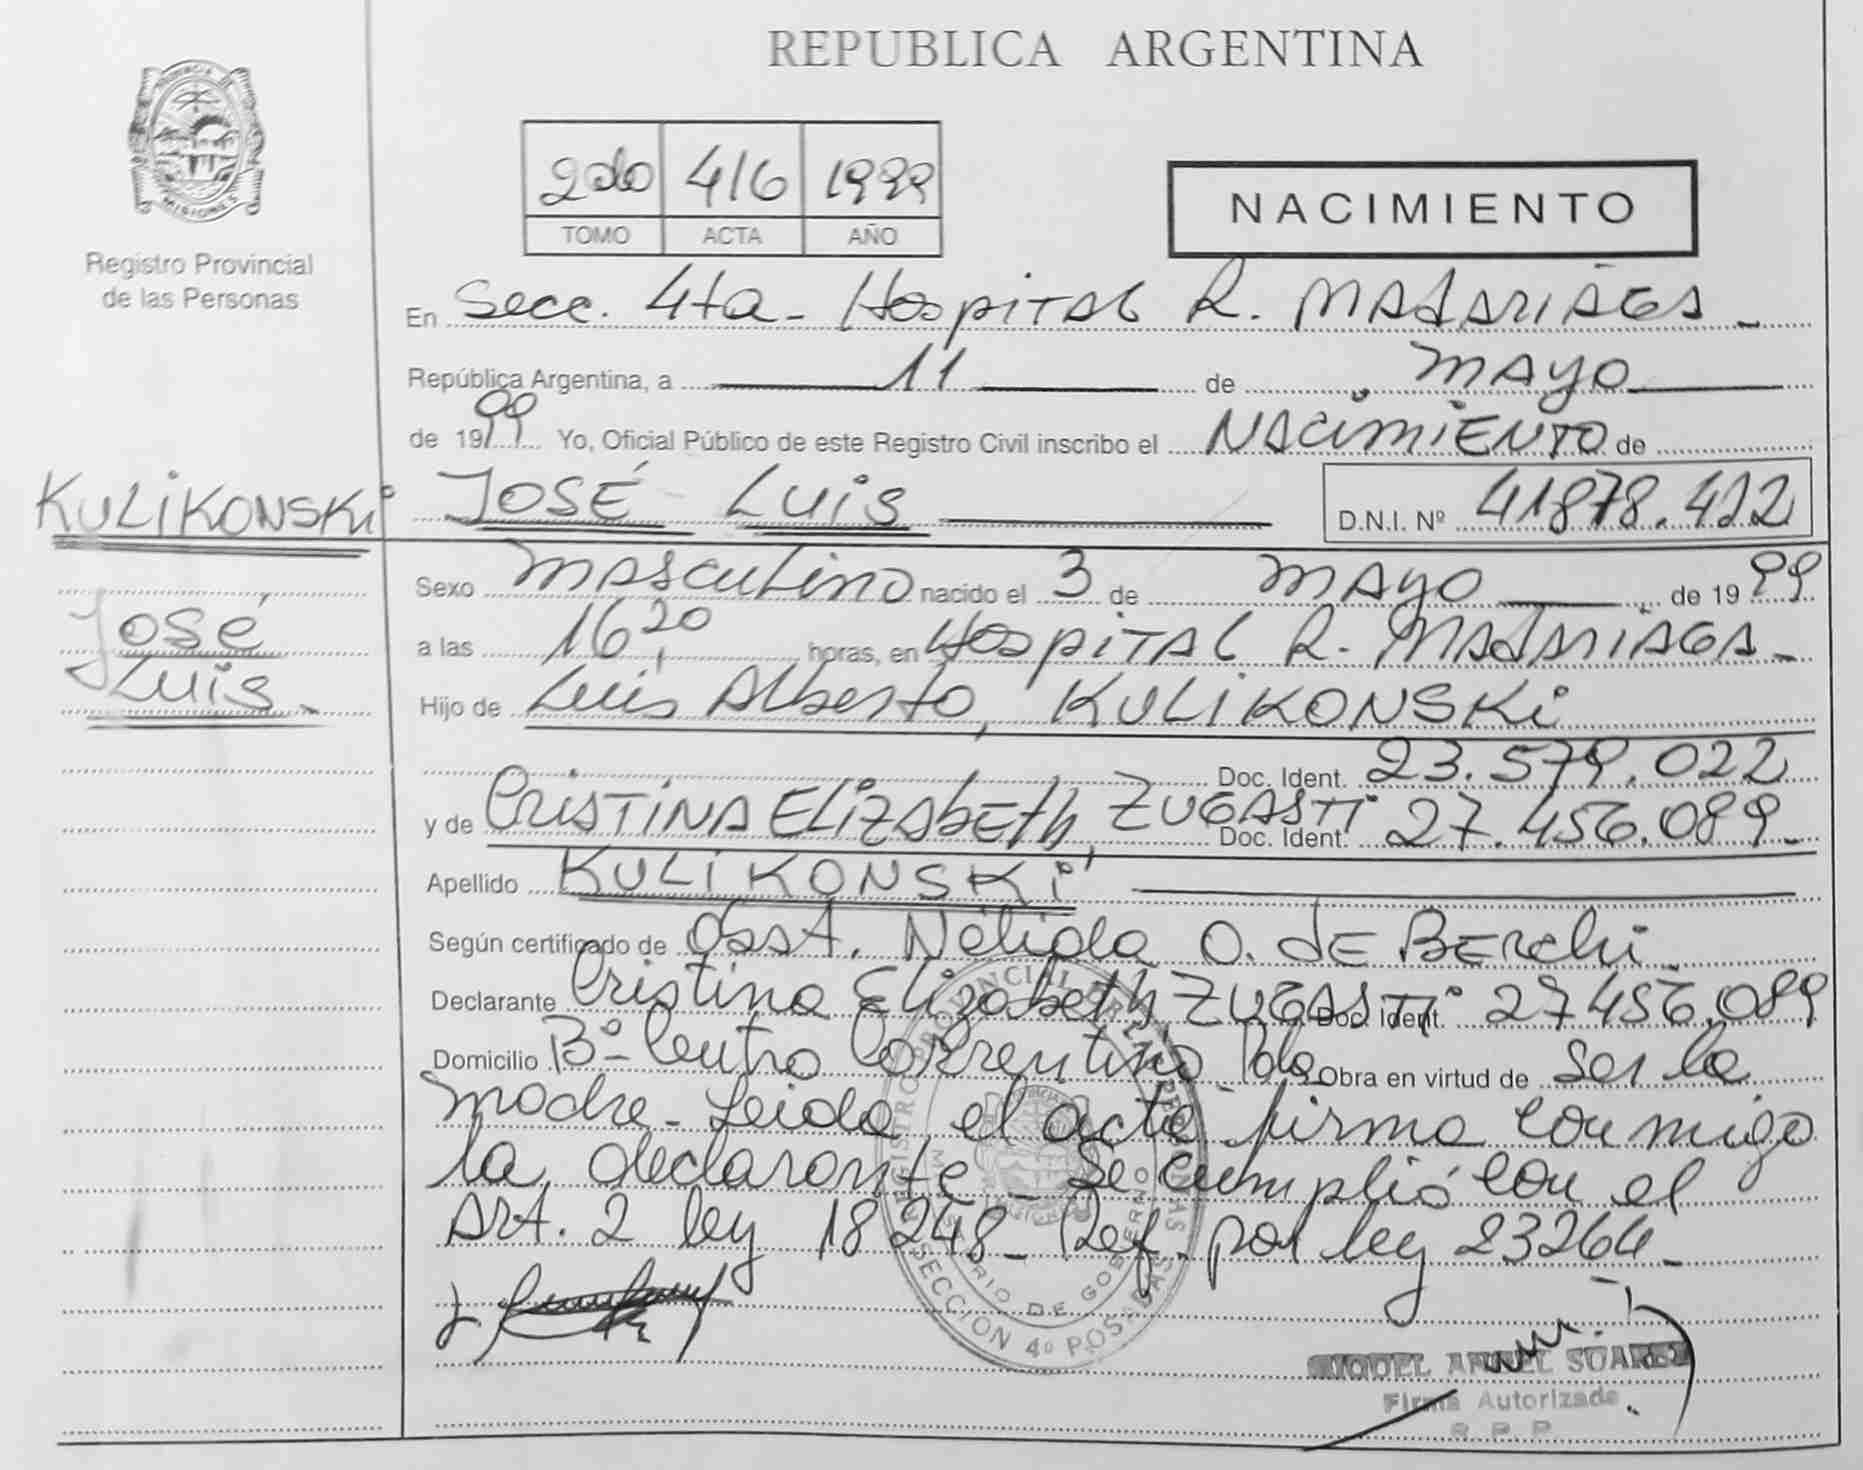 REPUBLICA ARGENTINA
PROVINCIA DE
MISIONES
Registro Provincial
de las Personas
2do 416 1999
TOMO ACTA AÑO
NACIMIENTO
En Secc. 4ta - Hospital R. MADARIAGA -
República Argentina, a 11 de MAYO
de 1999 Yo, Oficial Público de este Registro Civil inscribo el NACIMIENTO de
KULIKONSKI JOSÉ LUIS D.N.I. Nº 41878.422
Sexo MASCULINO nacido el 3 de MAYO de 1999
José
a las 16,20 horas, en Hospital R. MADARIAGA -
Luis.
Hijo de Luis Alberto, KULIKONSKI
Doc. Ident. 23.579.022
y de CRISTINA ELIZABETH, ZUGASTI Doc. Ident. 27.456.089 -
Apellido KULIKONSKI
Según certificado de Obst. Nélida O. de BERCHI
Declarante Cristina Elizabeth ZUGASTI Doc. Ident. 27456.089
Domicilio Bº- Centro Correntino Pdas Obra en virtud de ser la
madre - Leida el acta firma conmigo
la declarante - Se cumplió con el
Art. 2 ley 18248 - Ref. por ley 23264 -
REGISTRO PROVINCIAL DE LAS PERSONAS
MINISTERIO DE GOBIERNO
SECCION 4º POSADAS
MIGUEL ANGEL SUAREZ
Firma Autorizada
R. P. P.